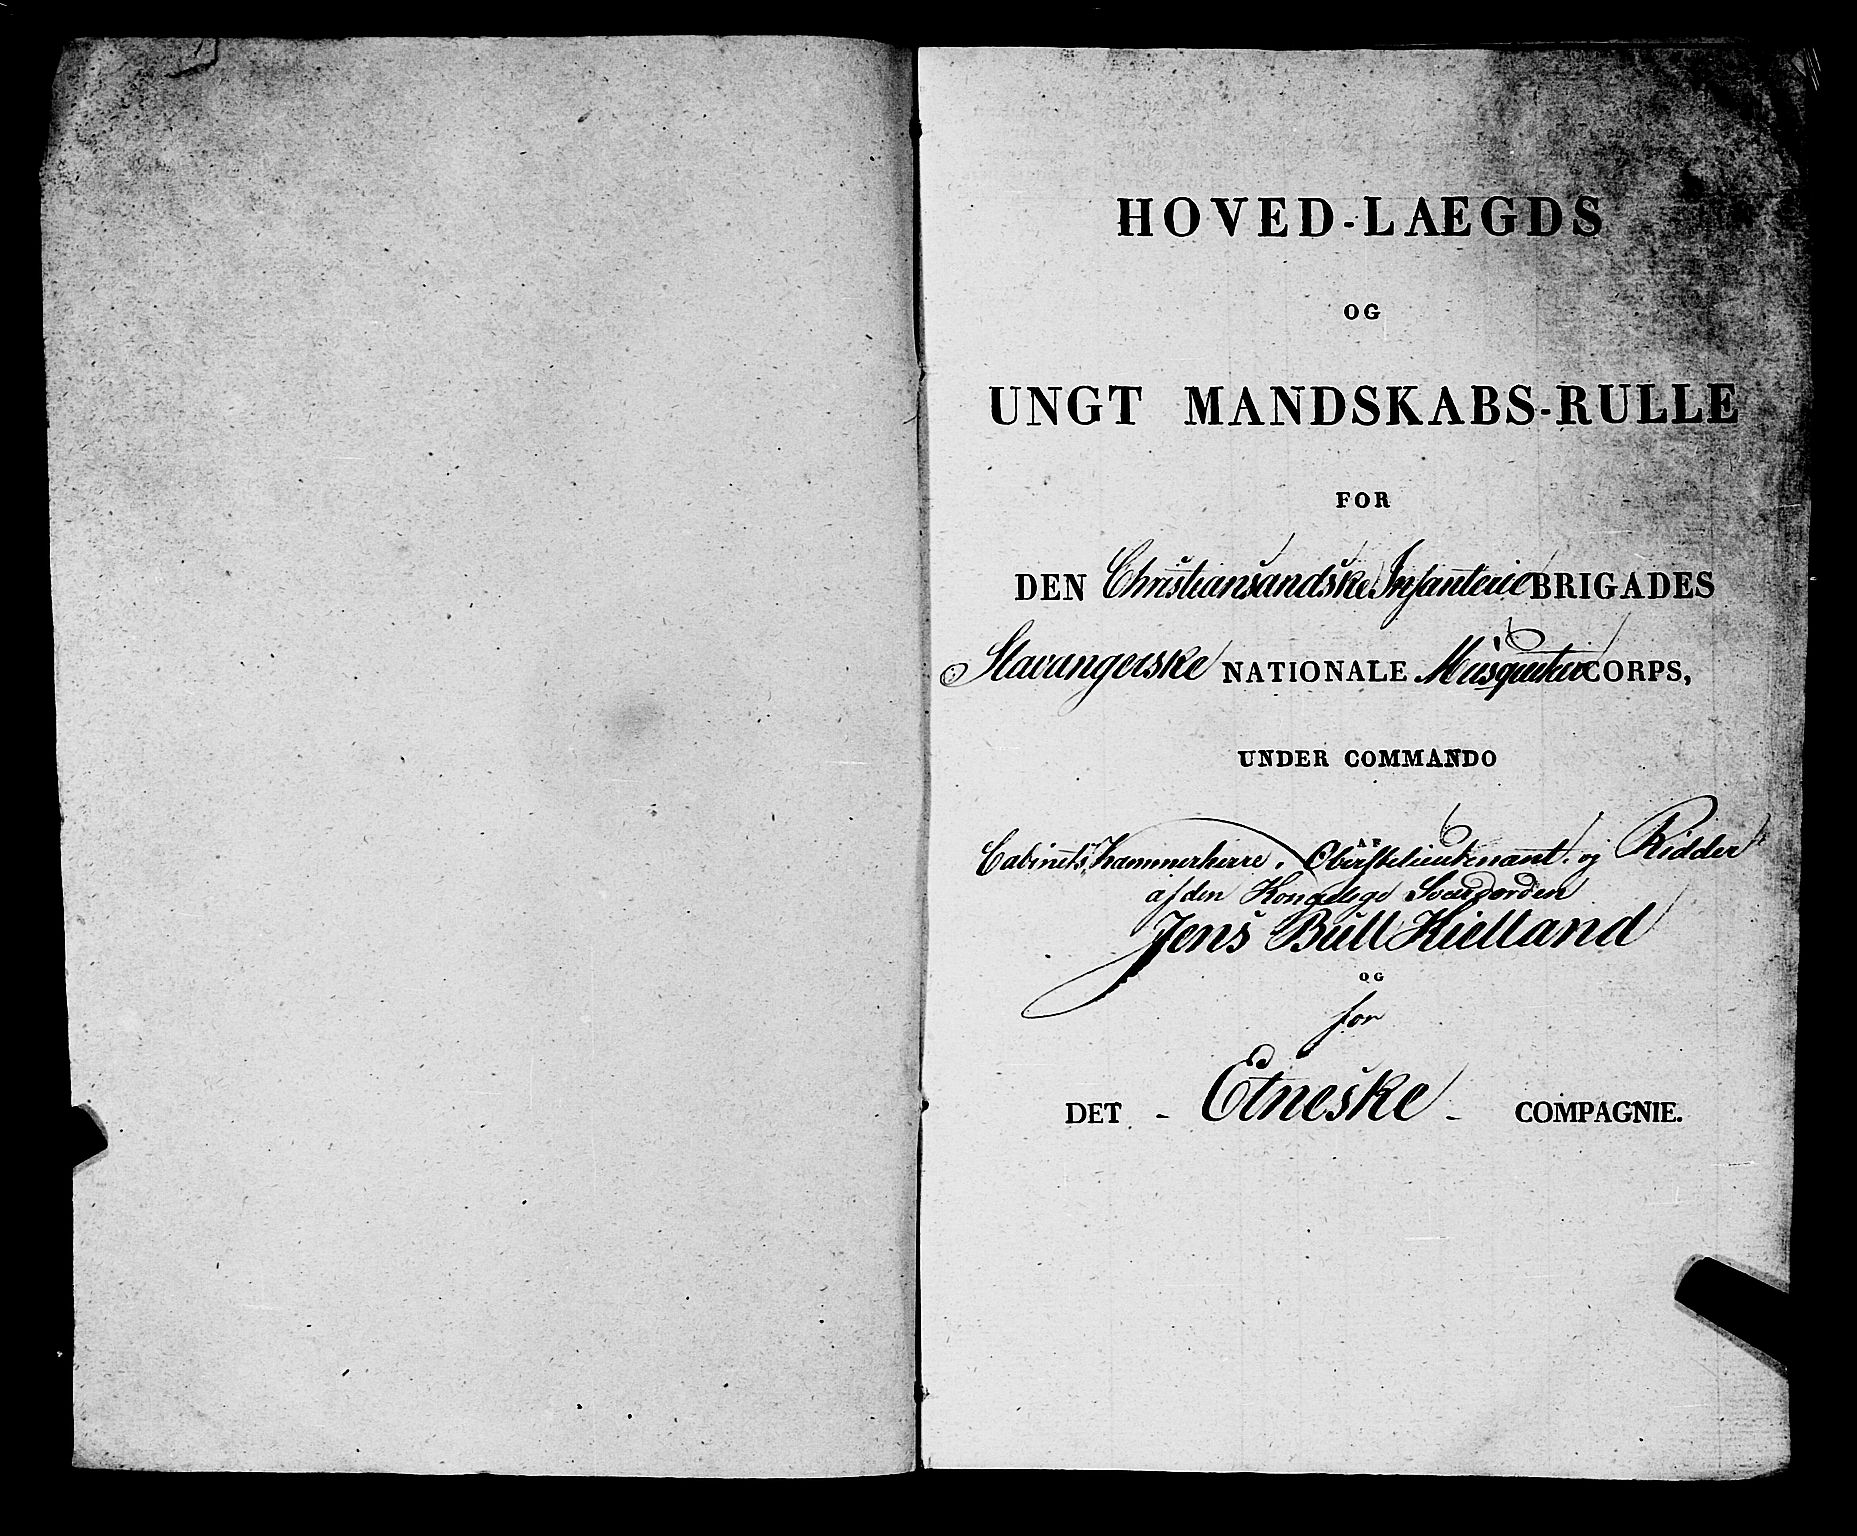 HOVED-LAEGDS
OG
UNGT MANDSKABS-RULLE
FOR
DEN Christiansandske Infanterie BRIGADES
Stavangerske NATIONALE Musqueteer CORPS,
UNDER COMMANDO
AF
Cabinets Kammerherre, Oberstelieutenant, og Ridder
af den Kongelige Sværdorden
Jens Bull Kielland
OG
for
DET - Etneske - COMPAGNIE.